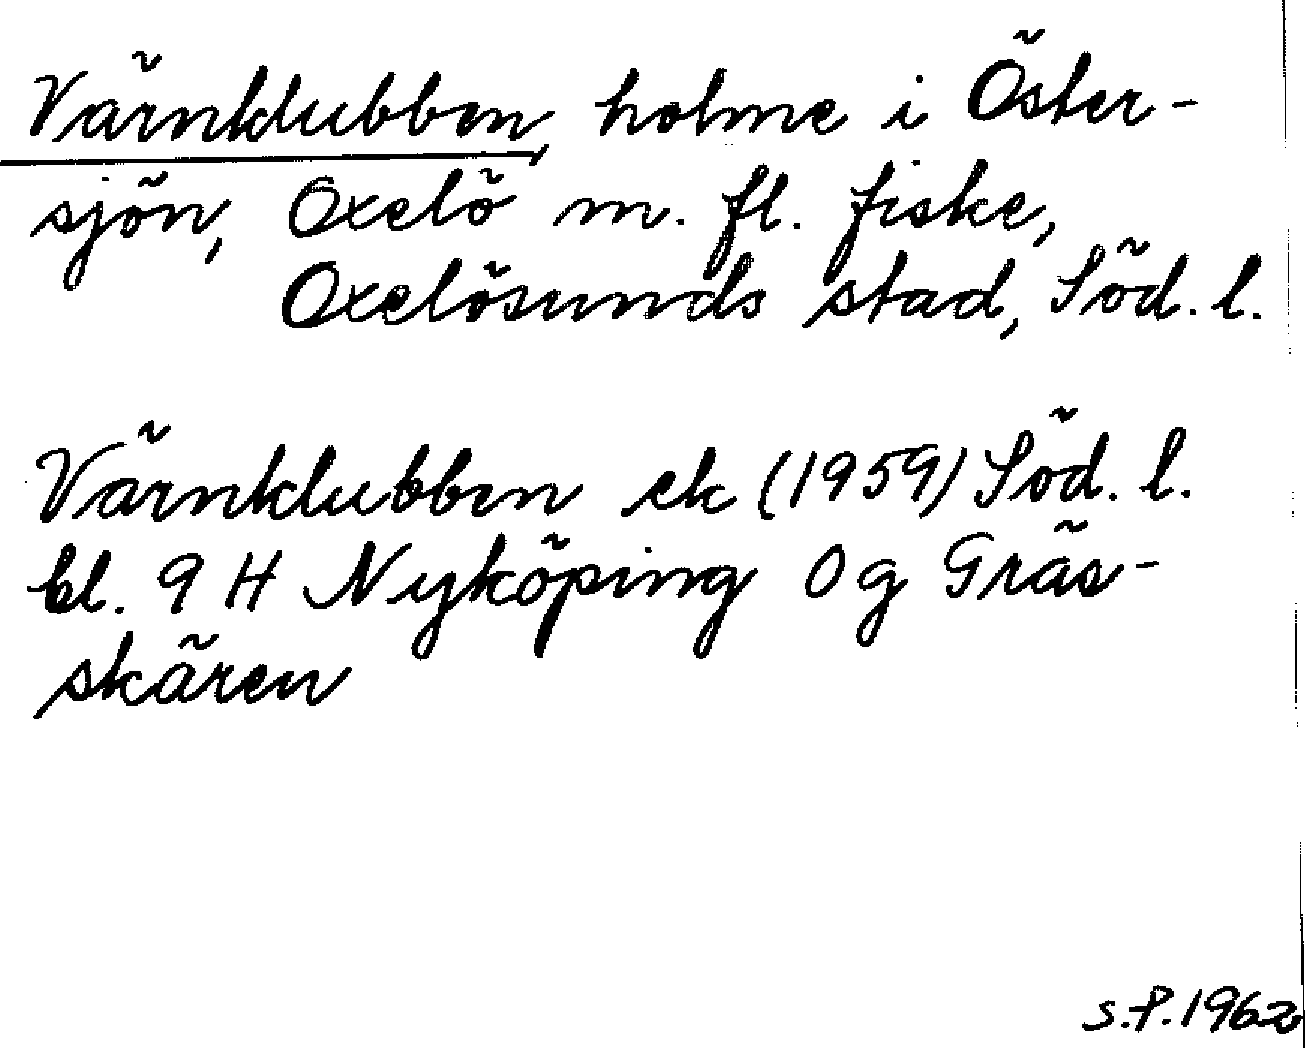 Värnklubben, holme i Öster-
sjön, Oxelö m. fl. fiske,
Oxelösunds stad, Söd. l.
Värnklubben ek (1959) Söd. l.
bl. 9 H Nyköping 0 g Gräs-
skären
S.P. 1962